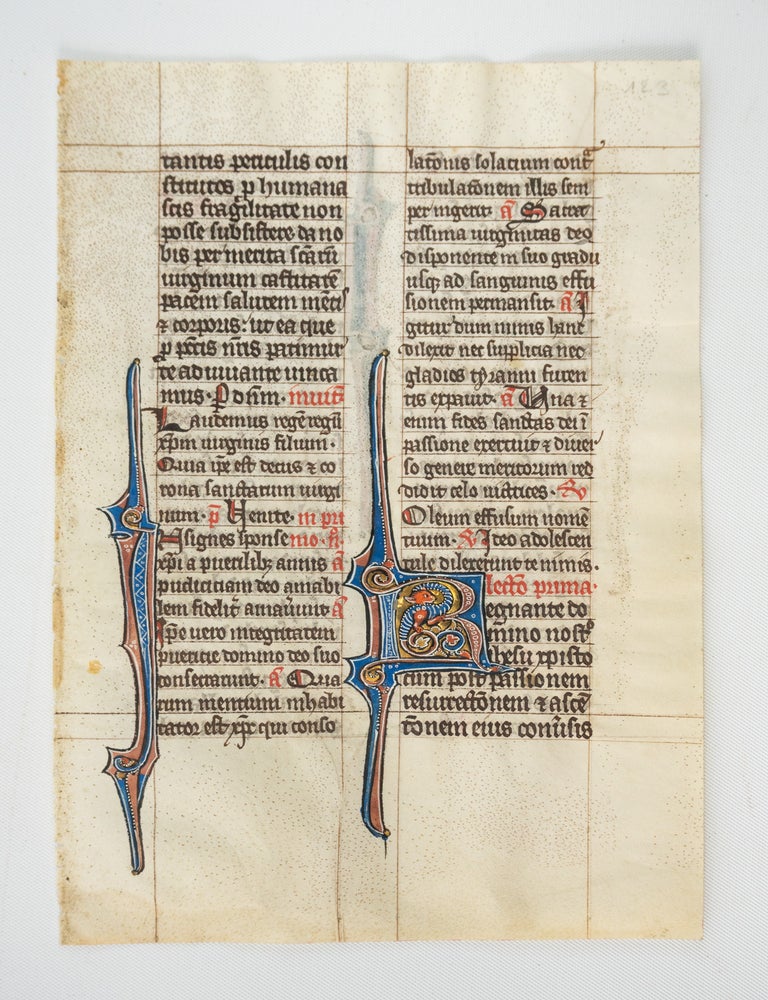 123
tantis periculis con
stitutos p humana
scis fragilitate non
posse subsistere da no
bis per merita scarū
uirginum castitatē
pacem salutem mēti᷒
⁊ corporis: ut ea que
p pctis nrīs patimur
te adiuuante uinca
mus. P dnm. inuit̄
Laudemus regē regū
xp̄m uirginis filium.
Quia ip̄e est decus ⁊ co
rona sanctarum uirgi
num. p̄ Venite. in pri
Insignes sponse mo. n̄.
xp̄i a puerilib; annis a᷒
pudiciciam deo amabi
lem fidelit̄ amauerūt a᷒
Ip̄e uero integritatem
puericie domino deo suo
consecrarunt. a᷒ Qua
rum mentium inhabi
tator est xp̄c qui conso
lationis solacium cont̄
tribulationem illis sem
per ingerit. a᷒ Sacra
tissima uirginitas deo
disponente in suo gradu
usq; ad sanguinis effu
sionem permansit. a᷒ I
gitur dum nimis hanc
dilexit nec supplicia nec
gladios tyranni furen
tis expauit. a᷒ Una ⁊
enim fides sanctas dei ī
passione exercuit ⁊ diuer
so genere meritorum red
didit celo uictrices. V̸
Oleum effusum nomē
tuum. V̸ Ideo adolescen
tule dilexerunt te nimis.
lectio prima.
Regnante do
mino nostro
ihesu xpisto
cum post passionem
resurrectionem ⁊ ascē
tionem eius conuisis